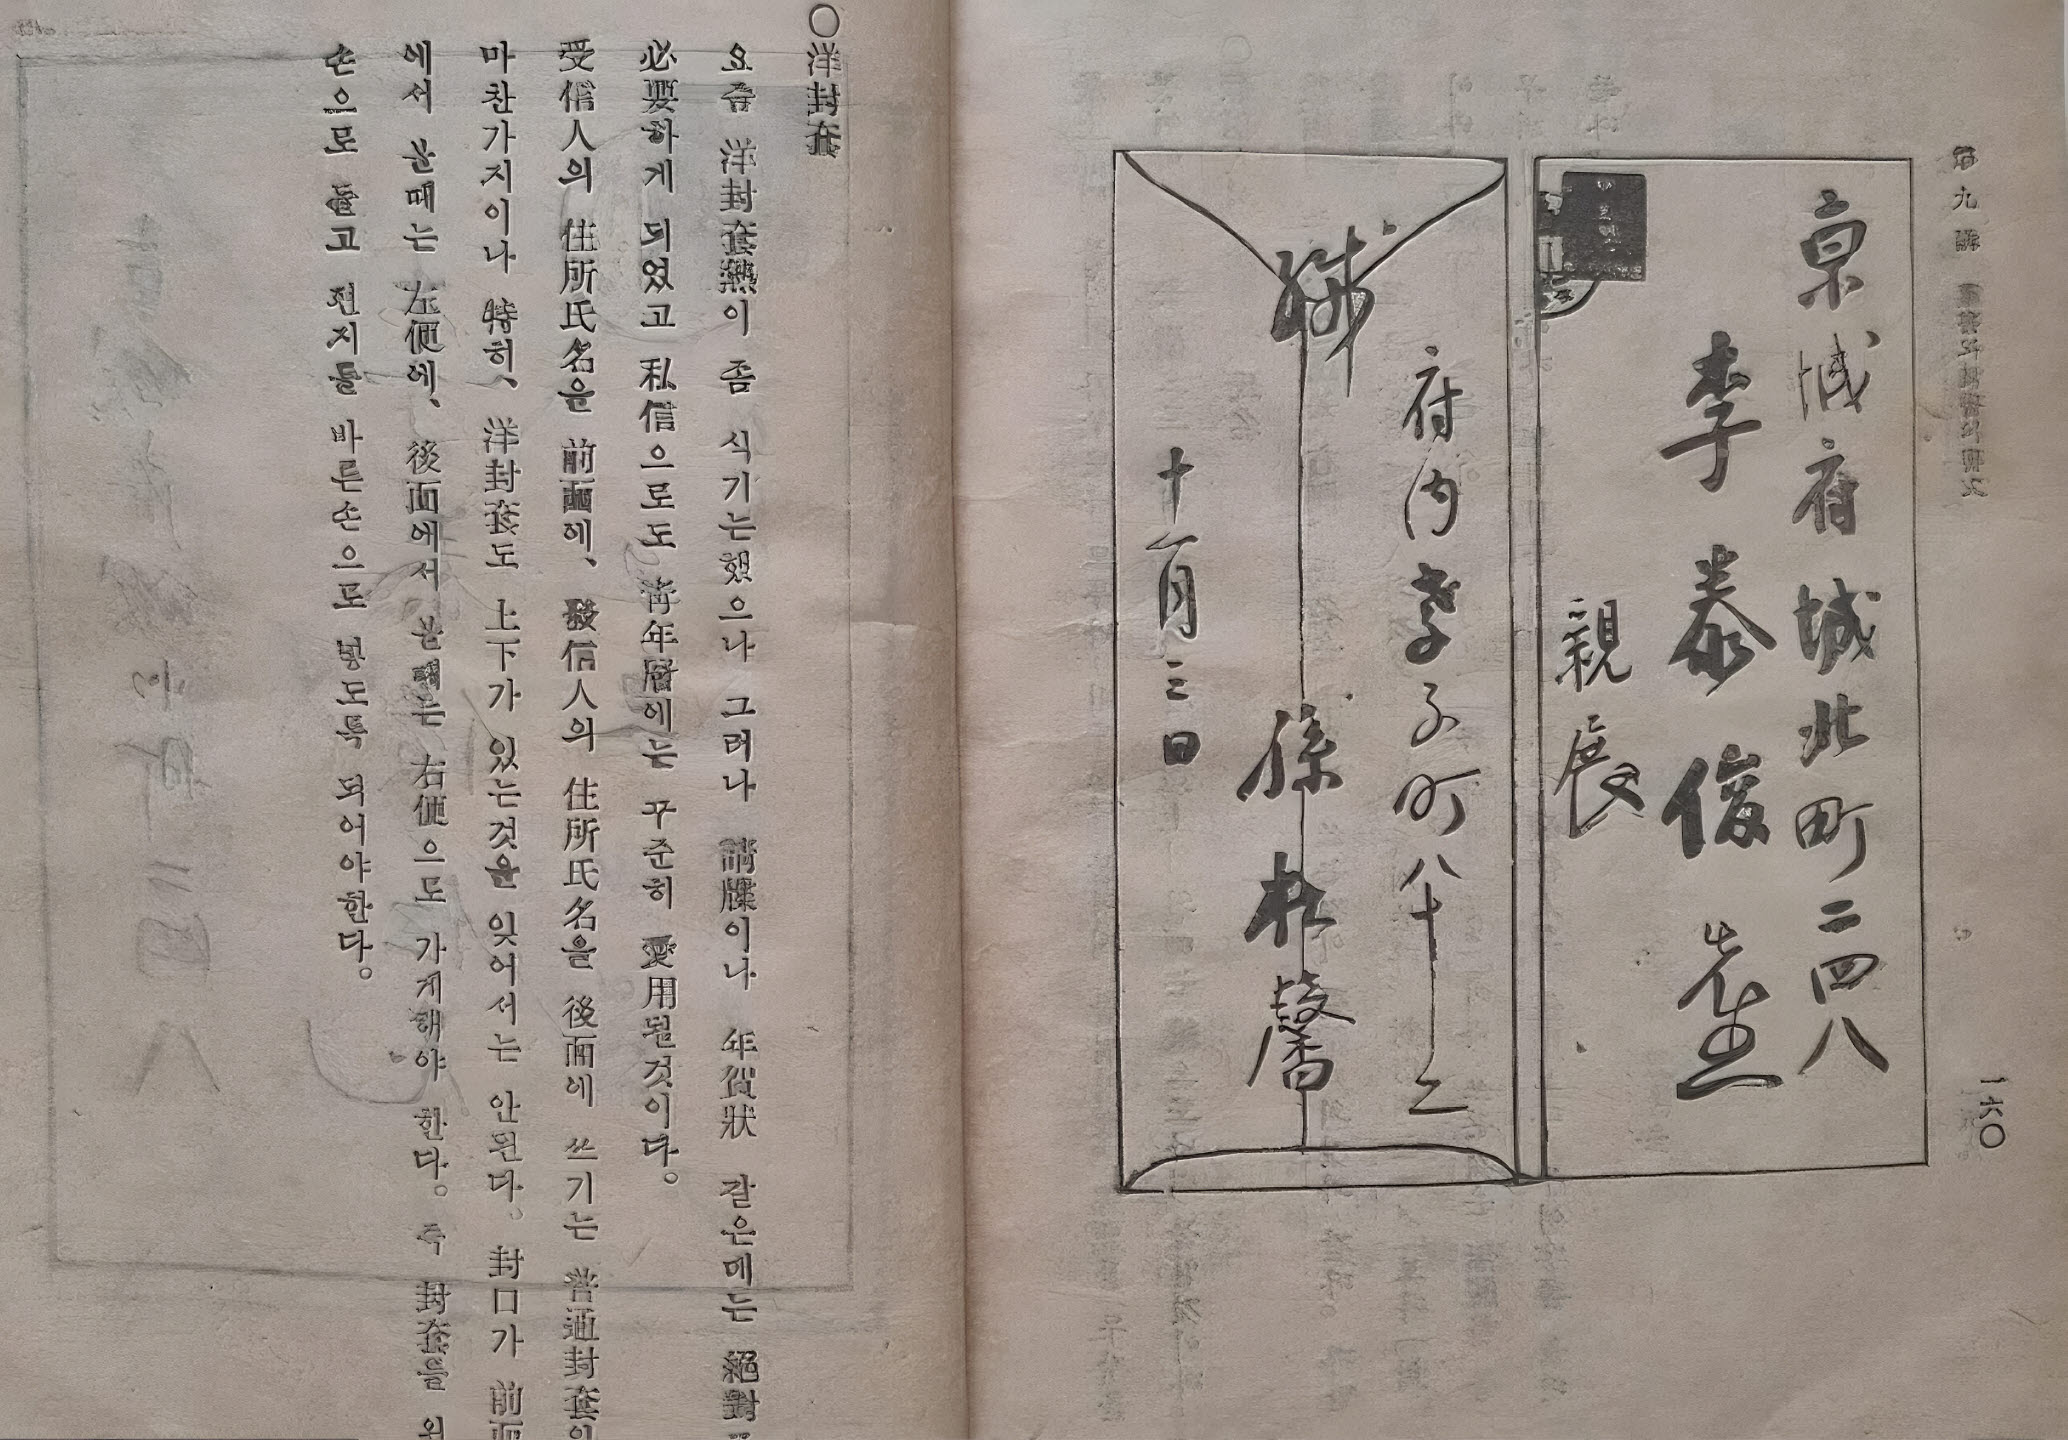 京城府城北町二四八
李泰俊 先生
親展
緘
府內孝子町八十二
孫
十一月三日
一六〇
○洋封套
요즘 洋封套熱이 좀 식기는했으나 그러나 請牒이나 年賀狀 같은데는 絕對
必要하게 되었고 私信으로도 靑年層에는 꾸준히 愛用될것이다。
受信人의 住所氏名을 前面에、發信人의 住所氏名을 後面에 쓰기는 普通封套와
마찬가지이나 特히、洋封套도 上下가 있는것을 잊어서는 안된다。封口가 前面
에서 볼때는 左便에、後面에서 볼때는 右便으로 가게해야 한다。즉 封套를 왼
손으로 들고 편지를 바른손으로 넣도록 되어야한다。